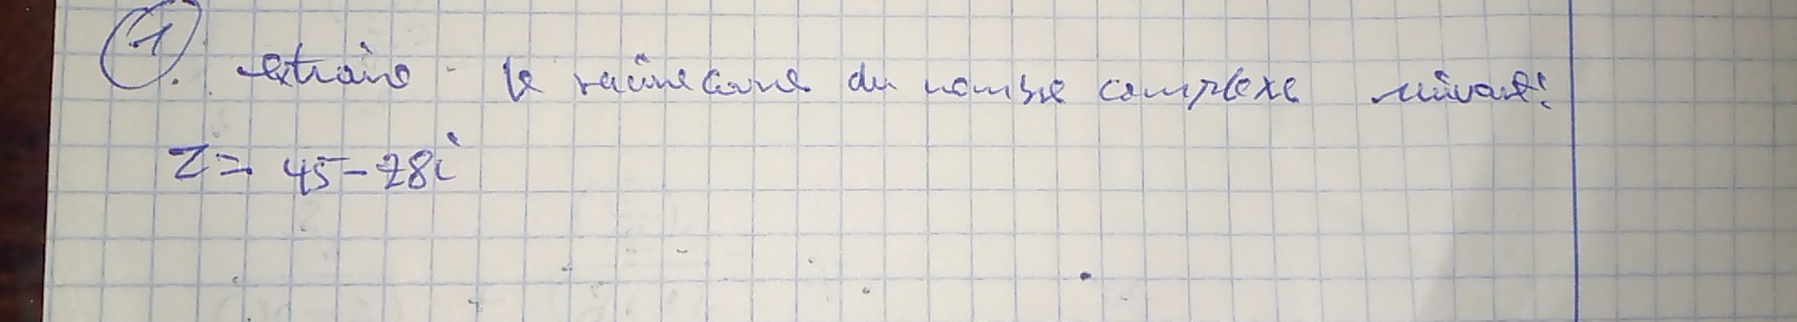 1. extraire le racine carré du nombre complexe suivant:
Z = 45-28i